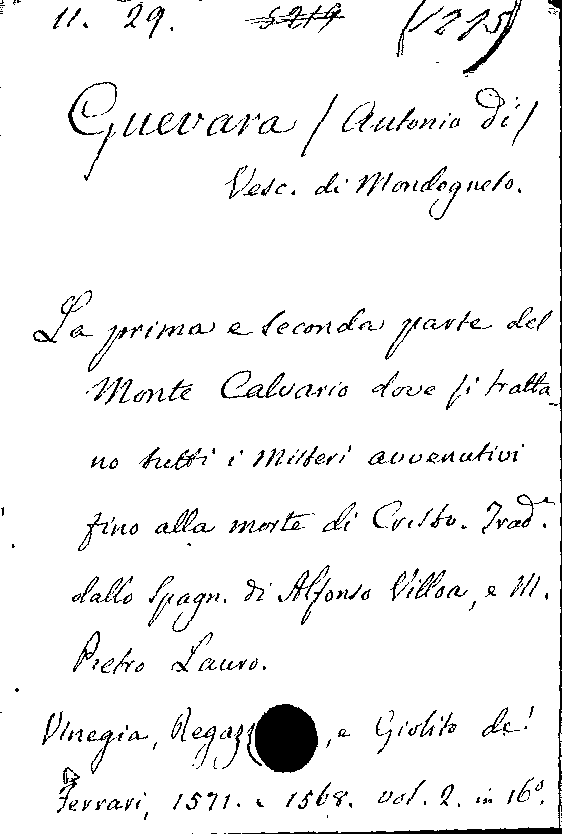 11. 29. 5219 (1225)
Guevara / Antonio di /
Vesc. di Mondogneto.
La prima e seconda parte del
Monte Calvario dove si tratta_
no tutti i Misteri avvenutivi
fino alla morte di Cristo. Trad.ᵉ
dallo Spagn. di Alfonso Villoa, e M.
Pietro Lauro.
Vinegia, Regazz , e Giolito de'
Ferrari, 1571. e 1568. vol. 2. in 16°.